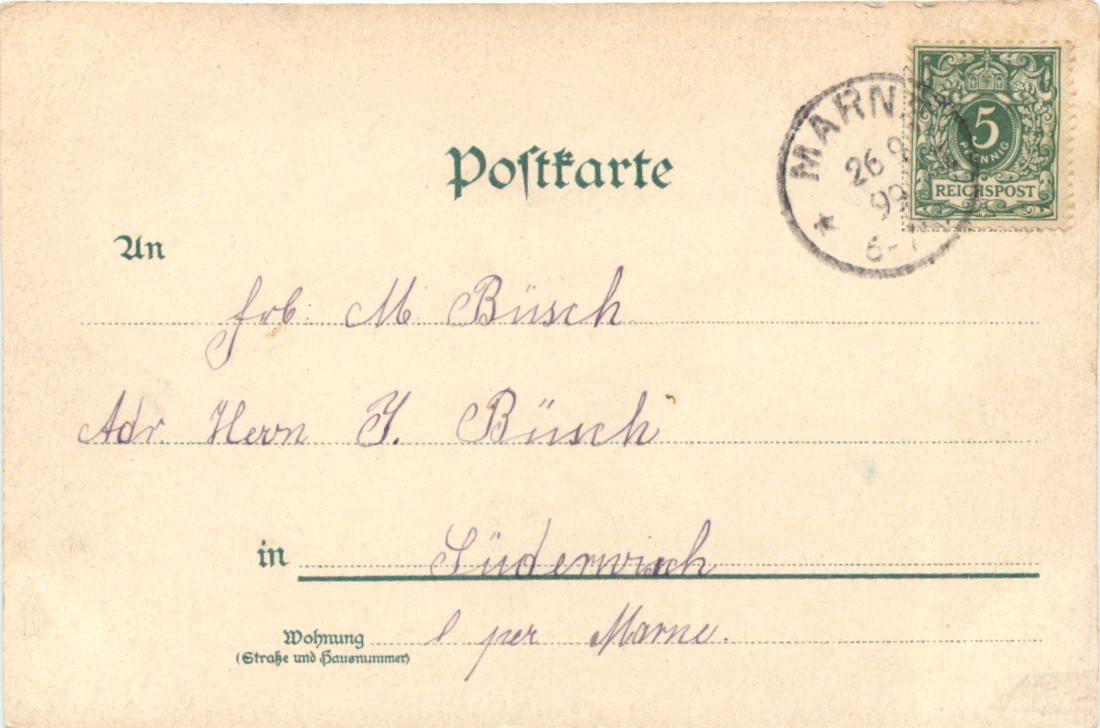 Postkarte
MARNE
26 9
99
6-7
5
PFENNIG
REICHSPOST
An
Frl. M. Büsch
Adr. Herrn J. Büsch
in Süderwisch
per Marne.
Wohnung
(Straße und Hausnummer)